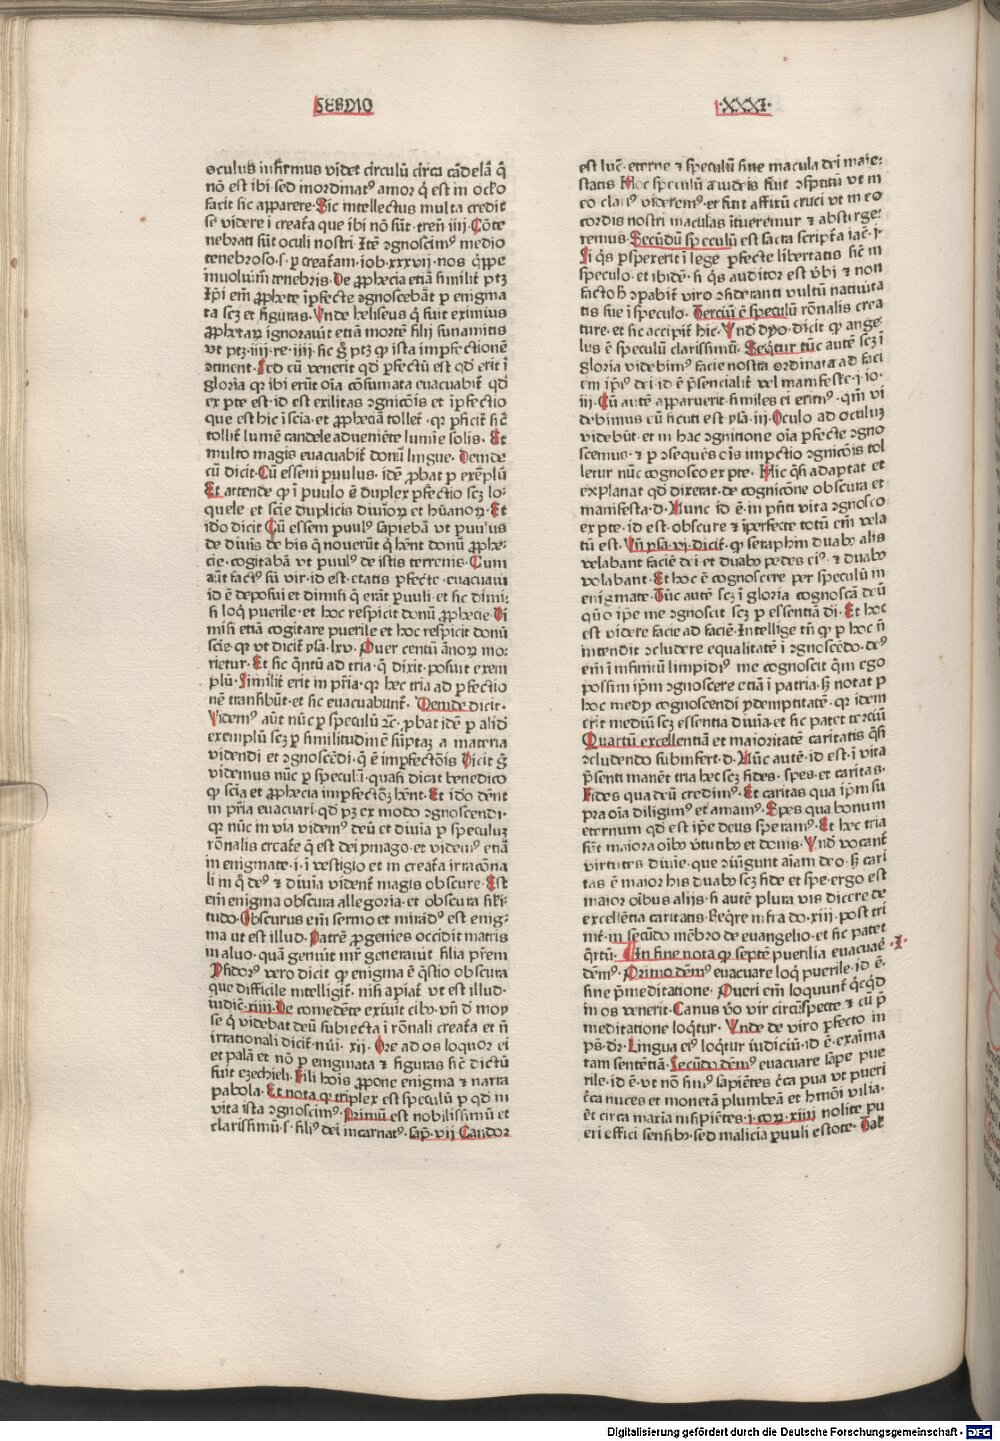 SERMO
·XXXI·
oculus infirmus videt circulū circa cādelā q̄
nō est ibi sed inordinatꝰ amor q̇ est in oclo
facit sic apparere·Sic intellectus multa credit
se videre ī creat̄a que ibi nō sūt·tren̄ iiij·Cōte
nebrati sūt oculi nostri·Itē ꝯgnoscimꝰ medio
tenebroso·s·ꝑ creat̄am·iob·xxxvij·nos q̄ppe
inuoluim̄ tenebris·De ꝓphecia etiā similit̄ ptꝫ
Ip̄i em̄ ꝓphete īꝑfecte ꝯgnoscebāt ꝑ enigma
ta scꝫ et figuras·Vnde heliseus q̇ fuit eximius
ꝓphetaꝝ ignorauit etiā mortē filij sunamitis
vt ptꝫ·iiij·re·iiij·sic gͦ ptꝫ ꝙ ista imꝑfectionē
ꝯtinent·Sed cū venerit qd̄ ꝑfectū est qd̄ erit ī
gloria qꝛ ibi erūt oīa cōsumata euacuabit̄ qd̄
ex ꝑte est·id est exilitas ꝯgnicōis et īꝑfectio
que est hic ī scīa·et ꝓpheciā tollet̄·qꝛ ꝑficit̄ sic̄
tollit̄ lumē candele adueniēte lumīe solis·Et
multo magis euacuabit̄ donū lingue·Deinde
cū dicit·Cū essem ꝑuulus·idē ꝓbat ꝑ exēplū
Et attende ꝙ ī ꝑuulo ē duplex ꝑfectio scꝫ lo⸗
quele et scīe duplicis diuīoꝝ et hūanoꝝ·Et
ido dicit Cū essem ꝑuulꝰ sapiebā vt ꝑuulus
de diuīs de his q̄ nouerūt q̇ hēnt donū ꝓphe⸗
cie·cogitabā vt ꝑuulꝰ de istis terrenis·Cum
aūt factꝰ sū vir·id est·etatis ꝑfecte·euacuaui
id ē deposui et dimisi q̄ erāt ꝑuuli·et sic dimi⸗
si loq̄ puerile·et hoc respicit donū ꝓphecie·Di
misi etiā cogitare puerile et hoc respicit donū
scīe·qꝛ vt dicit̄ ysa·lxv·Puer centū ānoꝝ mo⸗
rietur·Et sic q̄ntū ad tria·q̄ dixit·posuit exem
plū·Similit̄ erit in pr̄ia·qꝛ hec tria ad ꝑfectio
nē transibūt·et sic euacuabunt̄·Deinde dicit·
Videmꝰ aūt nūc ꝑ speculū ⁊c̄·ꝓbat idē ꝑ aliđ
exemplū scꝫ ꝑ similitudinē sūptaꝫ a materia
videndi et ꝯgnoscēdi·q̄ ē imꝑfectōis Dicit gͦ
videmus nūc ꝑ speculū·quasi dicat benedico
ꝙ scīa et ꝓphecia imꝑfectōꝫ hēnt·Et ido dēnt
in pr̄ia euacuari·qd̄ pꝫ ex modo ꝯgnoscendi·
qꝛ nūc in via videmꝰ deū et diuīa ꝑ speculuꝫ
rōnalis creat̄e q̄ est dei ymago·et videmꝰ etiā
in enigmate·i·ī vestigio et in creat̄a irracōna
li in q̄ deꝰ et diuīa vident̄ magis obscure·Est
em̄ enigma obscura allegoria·et obscura sili⸗
tudo·Obscurus em̄ sermo et mirādꝰ est enig⸗
ma ut est illud·Patrē ꝓgenies occidit matris
in aluo·quā genuit mr̄ generauit filia pr̄em
Isidorꝰ vero dicit ꝙ enigma ē q̄stio obscura
que difficile intelligit̄·nisi aꝑiat̄ vt est illud·
iudic̄·xiiij·De comedēte exiuit cibꝰ·vn̄ ď moy
se q̄ videbat deū subiecta ī rōnali creat̄a et n̄
irrationali dicit̄·nūi·xij·Ore ad os loquor ei
et palā et nō ꝑ enigmata ⁊ figuras sic̄ dictū
fuit ezechieli·Fili hoīs ꝓpone enigma ⁊ narra
pabola·Et nota ꝙ triplex est speculū ꝑ qd̄ in
vita ista ꝯgnoscimꝰ·Primū est nobilissimū et
clarissimū·s·filiꝰ dei incarnatꝰ·sap̄·vij·Candor
est luc̄·eterne ⁊ speculū sine macula dei maie⸗
statis
Hoc speculū a iudeis fuit ꝯsputū vt in
eo clariꝰ videremꝰ·et fuit affixū cruci vt in eo
cordis nostri maculas ītueremur ⁊ absterge⸗
remus·Secūdū speculū est sacra script̄a iac̄·i·
Si q̇s ꝑspexerit ī lege ꝑfecte libertatis sic̄ in
speculo·et ibidē·si q̇s auditor est v̄bi ⁊ non
factor h̄ ꝯpabit̄ viro ꝯsideranti vultū natiuita
tis sue ī speculo·Terciū ē speculū rōnalis crea
ture·et sic accipit̄ hic·Vnd̄ dyo·dicit ꝙ ange
lus ē speculū clarissimū·Seq̄tur tūc autē scꝫ ī
gloria videbimꝰ facie nostra ordinata ad faci
em ip̄iꝰ dei·id ē p̄sencialit̄ vel manifeste·i·io·
iij·Cū autē apparuerit similes ei erimꝰ·qm̄ vi
debimus eū sicuti est ysa·iij·Oculo ad oculuꝫ
videbūt·et in hac ꝯgnitione oīa ꝑfecte ꝯgno
scemus·⁊ ꝑ ꝯsequēs oīs imꝑctio ꝯgnicōis tol
letur nūc cognosco ex ꝑte·Hic q̄si adaptat et
explanat qd̄ dixerat·de cognicōne obscura et
manifesta·d·Nunc id ē·in p̄nti vita ꝯgnosco
ex ꝑte·id est·obscure ⁊ īꝑfecte totū em̄ vela
tū est·Vn̄ ysa·vi·dicit̄·ꝙ seraphin duabꝰ alis
velabant faciē dei·et duabꝰ pedes eiꝰ·⁊ duabꝰ
volabant·Et hoc ē cognoscere per speculū in
enigmate·Tūc autē scꝫ ī gloria cognoscā deū
quō ip̄e me ꝯgnoscit scꝫ ꝑ essentiā dī·Et hoc
est videre facie ad faciē·Intellige tn̄ ꝙ ꝑ hoc n̄
intendit ꝯcludere equalitatē ī ꝯgnoscēdo·deꝰ
em̄ ī infinitū limpidiꝰ me cognoscit q̄m ego
possim ip̄m ꝯgnoscere etiā ī patria·sꝫ notat ꝑ
hoc medy cognoscendi ydemptitatē·qꝛ idem
erit mediū scꝫ essentia diuīa·et sic patet terciū
Quartū excellentiā et maioritatē caritatis q̄si
ꝯcludendo subinfert·d·Nūc autē·id est·ī vita
p̄senti manēt tria hec scꝫ fides·spes·et caritas·
Fides qua deū credimꝰ·Et caritas qua ip̄m su
pra oīa diligimꝰ et amamꝰ·Spes qua bonum
eternum qd̄ est ip̄e deus speramꝰ·Et hec tria
sūt maiora oībꝰ v̄tutibꝰ et donis·Vnd̄ vocant̄
virtutes diuīe·que ꝯiūgunt aīam deo·sꝫ cari
tas ē maior his duabꝰ scꝫ fide et spe·ergo est
maior oībus alijs·si autē plura vis dicere de
excellētia caritatis·Req̄re infra do·xiij·post tri
nit̄·in secūdo mēbro de euangelio·et sic patet
q̄rtū·In fine nota ꝙ septē puerilia euacuaē ·I·
dēmꝰ·Primo dēmꝰ euacuare loq̄ puerile·id ē·
sine p̄meditatione·Pueri em̄ loquunt̄ q̇cq̇d
in os venerit·Canus v̄o vir circūspecte ⁊ cū p̄
meditatione loq̄tur·Vnde de viro ꝑfecto in
ps̄·dr̄·Lingua eiꝰ loq̄tur iudiciū·id ē·exaīma
tam sentētiā·Secūdo dēmꝰ euacuare sape pue
rile·id ē·vt nō simꝰ sapiētes c̄ca pua vt pueri
c̄ca nuces et monetā plumbeā et hmōi vilia·
et circa maxīa insipiētes·i·coꝝ·xiiij nolite pu
eri effici sensibꝰ·sed malicia ꝑuuli estote·Tal̄
Digitalisierung gefördert durch die Deutsche Forschungsgemeinschaft - DFG